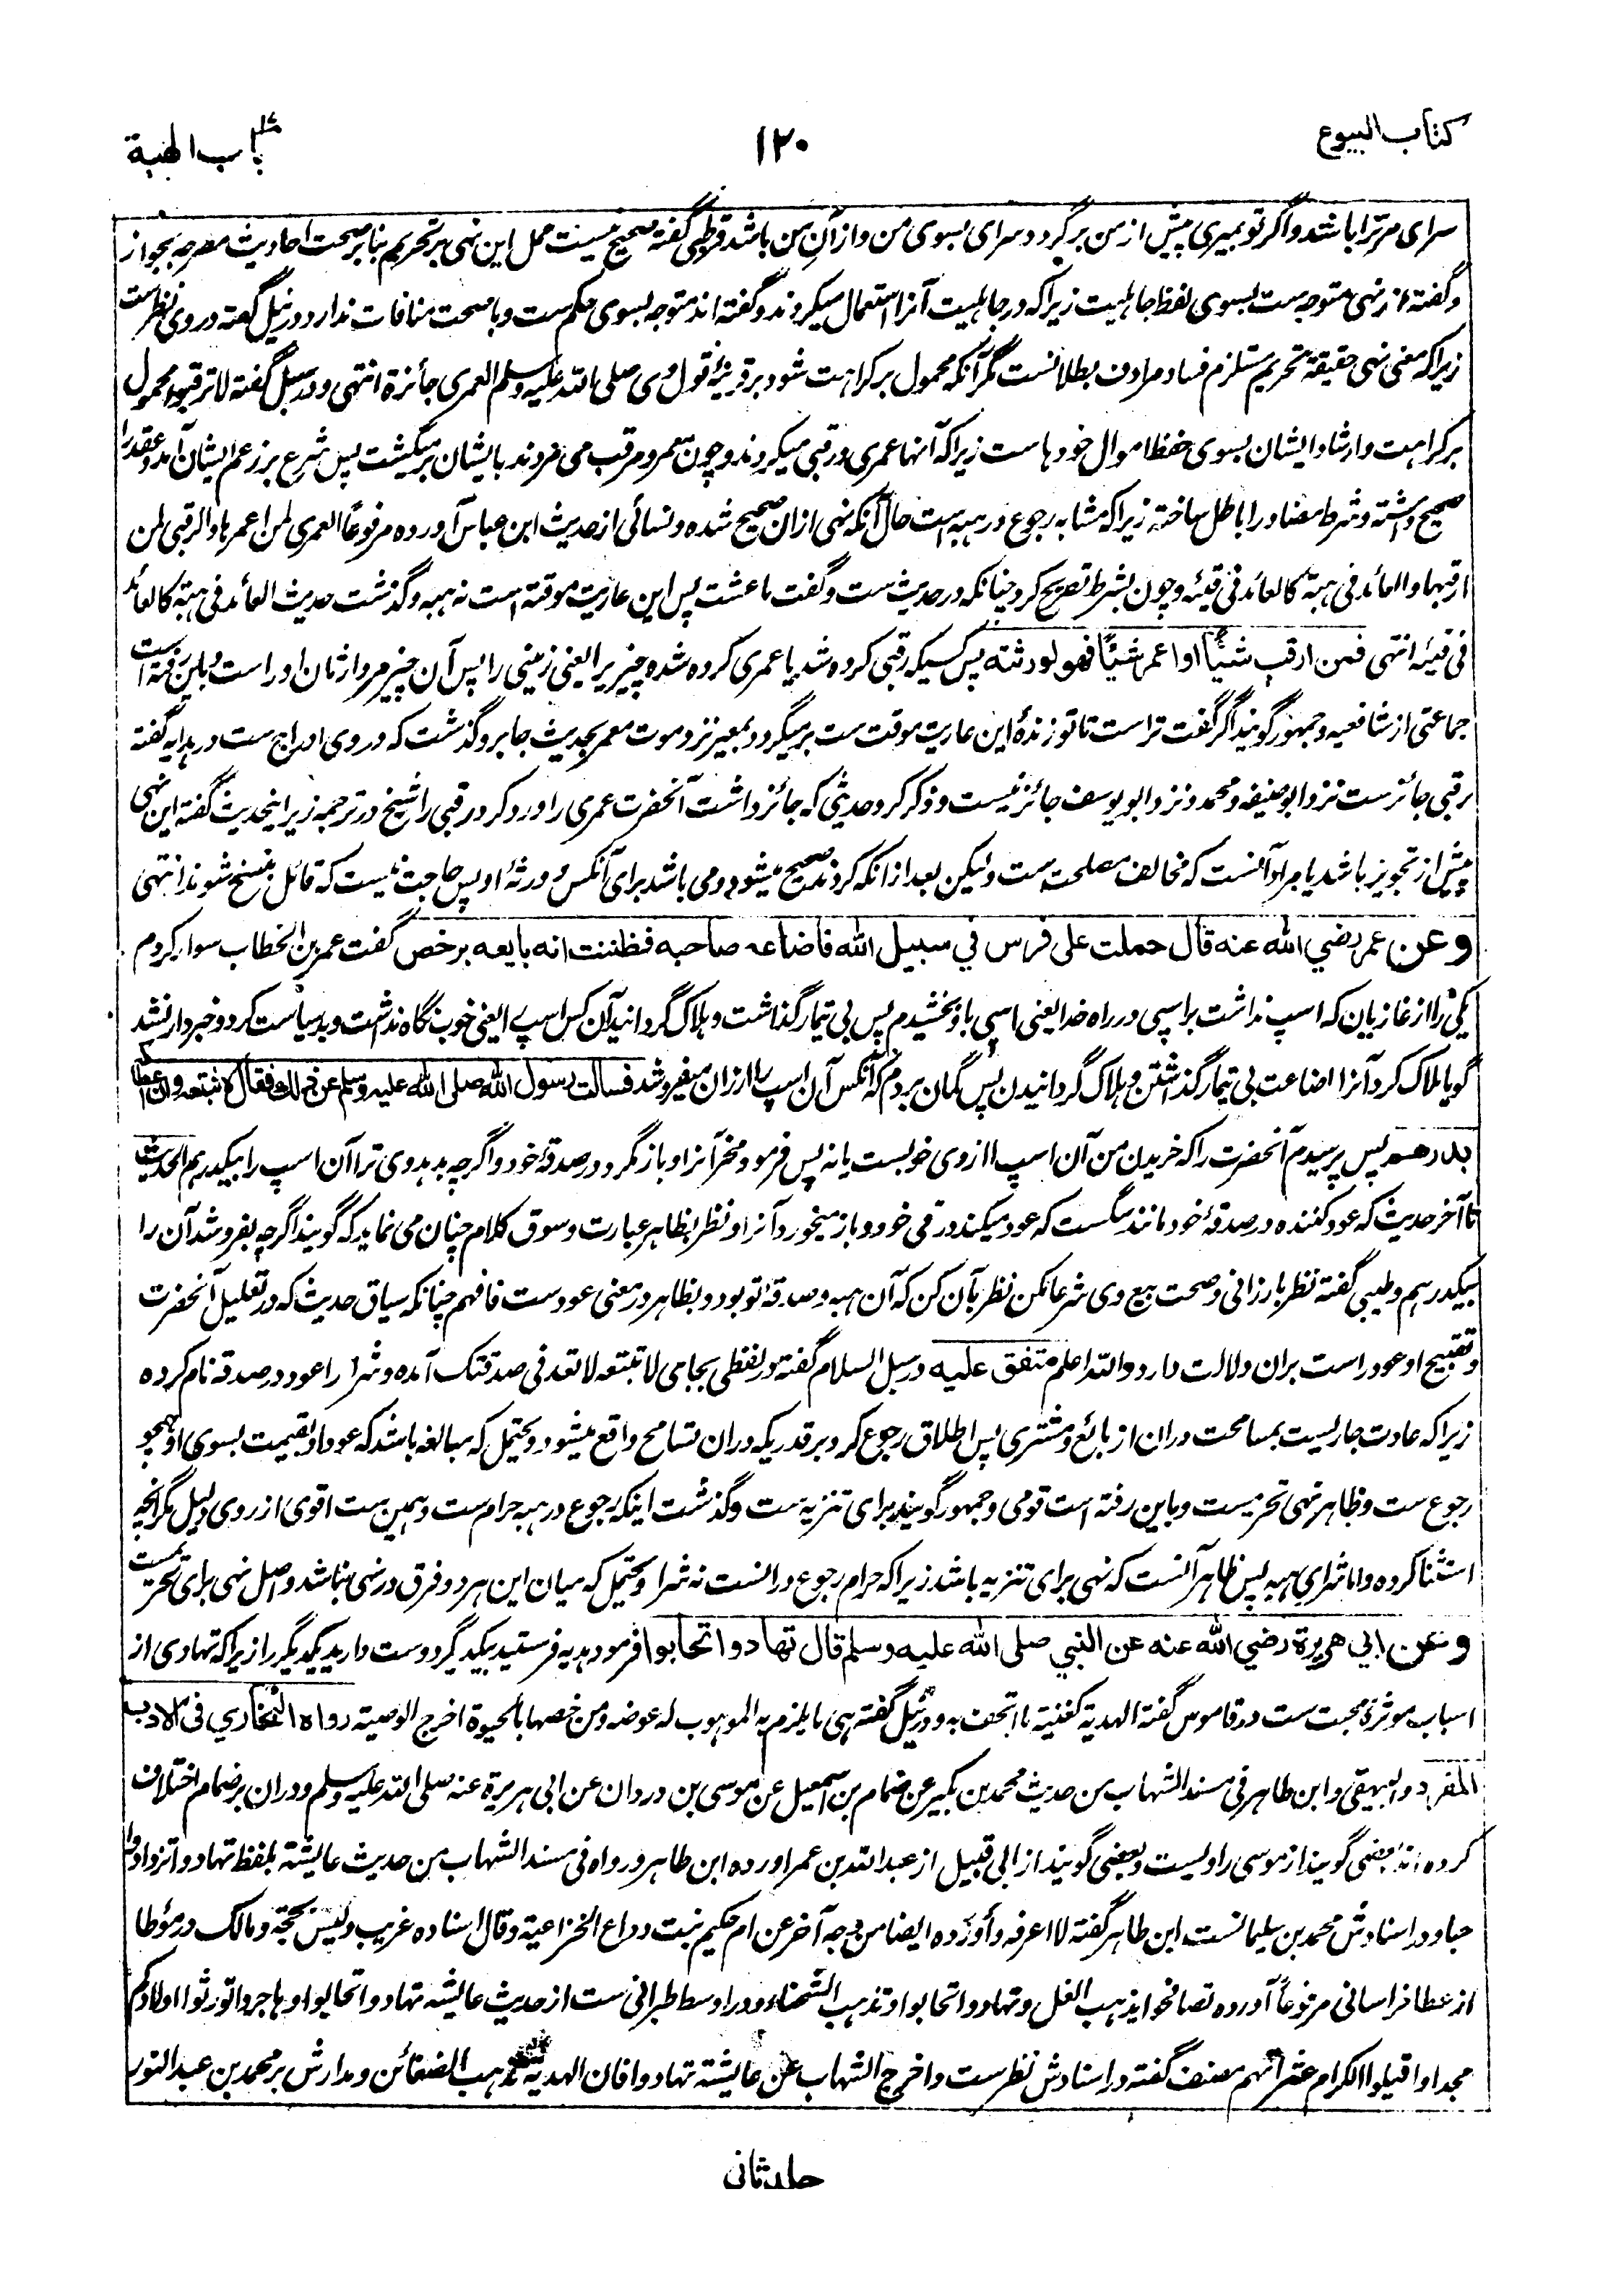 کتاب البیوع
۱۲۰
باب الهبة
سرای مر ترا باشد و اگر تو بمیری پیش از من برگردد سرای بسوی من و از آنِ من باشد قرطبی گفته صحیح نیست حمل این نهی بر تحریم بنا بر صحت احادیث مصرحه بجواز
و گفته اند نهی متوجه ست بسوی لفظ جاهلیت زیراکه در جاهلیت آنرا استعمال میکردند و گفته اند متوجه بسوی حکم ست و با صحت منافات ندارد و در نیل گفته در وی نظر است
زیراکه معنی نهی حقیقة تحریم مستلزم فساد مرادف بطلانست مگر آنکه محمول بر کراهت شود بر قرینهٔ قول وی صلی الله علیه وسلم العمری جائزة انتهی و در سبل گفته لا ترقبوا محمول
بر کراهت و ارشاد ایشان بسوی حفظ اموال خودها ست زیراکه آنها عمری و رقبی میکردند و چون معمر و مرقب می مردند بایشان برمیگشت پس شرع بر زعم ایشان آمد و عقد را
صحیح داشته و شرط مضاد را باطل ساخته زیراکه مشابه رجوع در هبه است حال آنکه نهی ازان صحیح شده و نسائی از حدیث ابن عباس آورده مرفوعاً العمری لمن اعمرها و الرقبی لمن
ارقبها و العائد فی هبته کالعائد فی قیئه و چون بشرط تصریح کرد چنانکه در حدیث ست و گفت ما عشت پس این عاریت موقته است نه هبه و گذشت حدیث العائد فی هبته کالعائد
فی قیئه انتهی فمن ارقب شیئًا او اعمر شیئًا فهو لورثته پس کسیکه رقبی کرده شد یا عمری کرده شد چیزیرا یعنی زمینی را پس آن چیز مر وارثان او راست و باین رفته است
جماعتی از شافعیه و جمهور گویند اگر گفت تراست تا تو زندهٔ این عاریت موقت ست برمیگردد بمعیر نزد موت معمر بحدیث جابر و گذشت که در وی ادراج ست در هدایه گفته
رقبی جائز ست نزد ابوحنیفه و محمد و نزد ابو یوسف جائز نیست و ذکر کرد حدیثی که جائز داشت آنحضرت عمری را و رد کرد رقبی را شیخ در ترجمه زیر اینحدیث گفته این نهی
پیش از تجویز باشد یا مراد آنست که مخالف مصلحت ست ولیکن بعد ازانکه کردند صحیح میشود و می باشد برای آنکس و ورثهٔ او پس حاجت نیست که قائل بنسخ شوند انتهی
وعن عمر رضي الله عنه قال حملت على فرس في سبيل الله فاضاعه صاحبه فظننت انه بايعه برخص گفت عمر بن الخطاب سوار کردم
یکی را از غازیان که اسپ نداشت بر اسپی در راه خدا یعنی اسپی باو بخشیدم پس بی تیمار گذاشت و هلاک گردانید آن کس اسپ را یعنی خوب نگاه نداشت و بد سیاست کرد و خبردار نشد
گویا هلاک کرد آنرا اضاعت بی تیمار گذاشتن و هلاک گردانیدن پس گمان بردم که آنکس آن اسپ را ارزان میفروشد فسالت رسول الله صلى الله عليه وسلم عن ذلك فقال لا تبتعه وان اعطاكه
بدرهم پس پرسیدم آنحضرت را که خریدن من آن اسپ را از وی خوبست یا نه پس فرمود مخر آنرا و باز مگرد در صدقهٔ خود و اگرچه بدهد وی ترا آن اسپ را بیکدرهم الحدیث
تا آخر حدیث که عود کننده در صدقهٔ خود مانند سگست که عود میکند در قی خود و باز میخورد آنرا و نظر بظاهر عبارت و سوق کلام چنان می نماید که گویند اگرچه بفروشد آن را
بیکدرهم و طیبی گفته نظر بارزانی و صحت بیع وی شرعا مکن نظر بآن کن که آن هبه و صدقهٔ تو بود و بظاهر در معنی عود ست فافهم چنانکه سیاق حدیث که در تعلیل آنحضرت
و تقبیح او عود راست بران دلالت دارد و الله اعلم متفق عليه در سبل السلام گفته در لفظی بجای لا تبتعه لا تعد فی صدقتک آمده و شرا را عود در صدقه نام کرده
زیراکه عادت جاریست بمسامحت دران از بائع و مشتری پس اطلاق رجوع کرد بر قدریکه دران تسامح واقع میشود و یحتمل که مبالغه باشد که عود او بقیمت بسوی او همچو
رجوع ست و ظاهر نهی تحریمست و باین رفته است قومی و جمهور گویند برای تنزیه ست و گذشت اینکه رجوع در هبه حرام ست و همین ست اقوی از روی دلیل مگر آنچه
استثنا کرده و اما شرای هبه پس ظاهر آنست که نهی برای تنزیه باشد زیراکه حرام رجوع درانست نه شرا و یحتمل که میان این هر دو فرق در نهی نباشد و اصل نهی برای تحریمست
وعن ابي هريرة رضي الله عنه عن النبي صلى الله عليه وسلم قال تهادوا تحابوا فرمود هدیه فرستید بیکدیگر و دوست دارید یکدیگر را زیراکه تهادی از
اسباب موثرهٔ محبت ست در قاموس گفته الهدیة کغنیة ما اتحف به و در نیل گفته هی ما یلزم به الموهوب له عوضه و من خصها بالحیوة اخرج الوصیة رواه البخاري في الادب
المفرد و البیهقی و ابن طاهر فی مسند الشهاب من حدیث محمد بن بکیر عن ضمام بن اسمعیل عن موسی بن وردان عن ابی هریرة عنه صلی الله علیه وسلم و دران بر ضمام اختلاف
کرده اند بعضی گویند از موسی راویست و بعضی گویند از ابی قبیل از عبدالله بن عمر آورده ابن طاهر و رواه فی مسند الشهاب من حدیث عایشة بلفظ تهادوا تزدادوا
حبا و در اسنادش محمد بن سلیمانست ابن طاهر گفته لا اعرفه و آورده ایضا من وجه آخر عن ام حکیم بنت وداع الخزاعیة و قال اسناده غریب و لیس بحجة و مالک در مؤطا
از عطا خراسانی مرفوعاً آورده تصافحوا یذهب الغل و تهادوا تحابوا و تذهب الشحناء و در اوسط طبرانی ست از حدیث عایشه تهادوا تحابوا و هاجروا تورثوا اولادکم
مجدا و اقیلوا الکرام عثراتهم مصنف گفته در اسنادش نظرست و اخرج الشهاب عن عایشة تهادوا فان الهدیة تذهب الضغائن و مدارش بر محمد بن عبدالنور
جلد ثانی